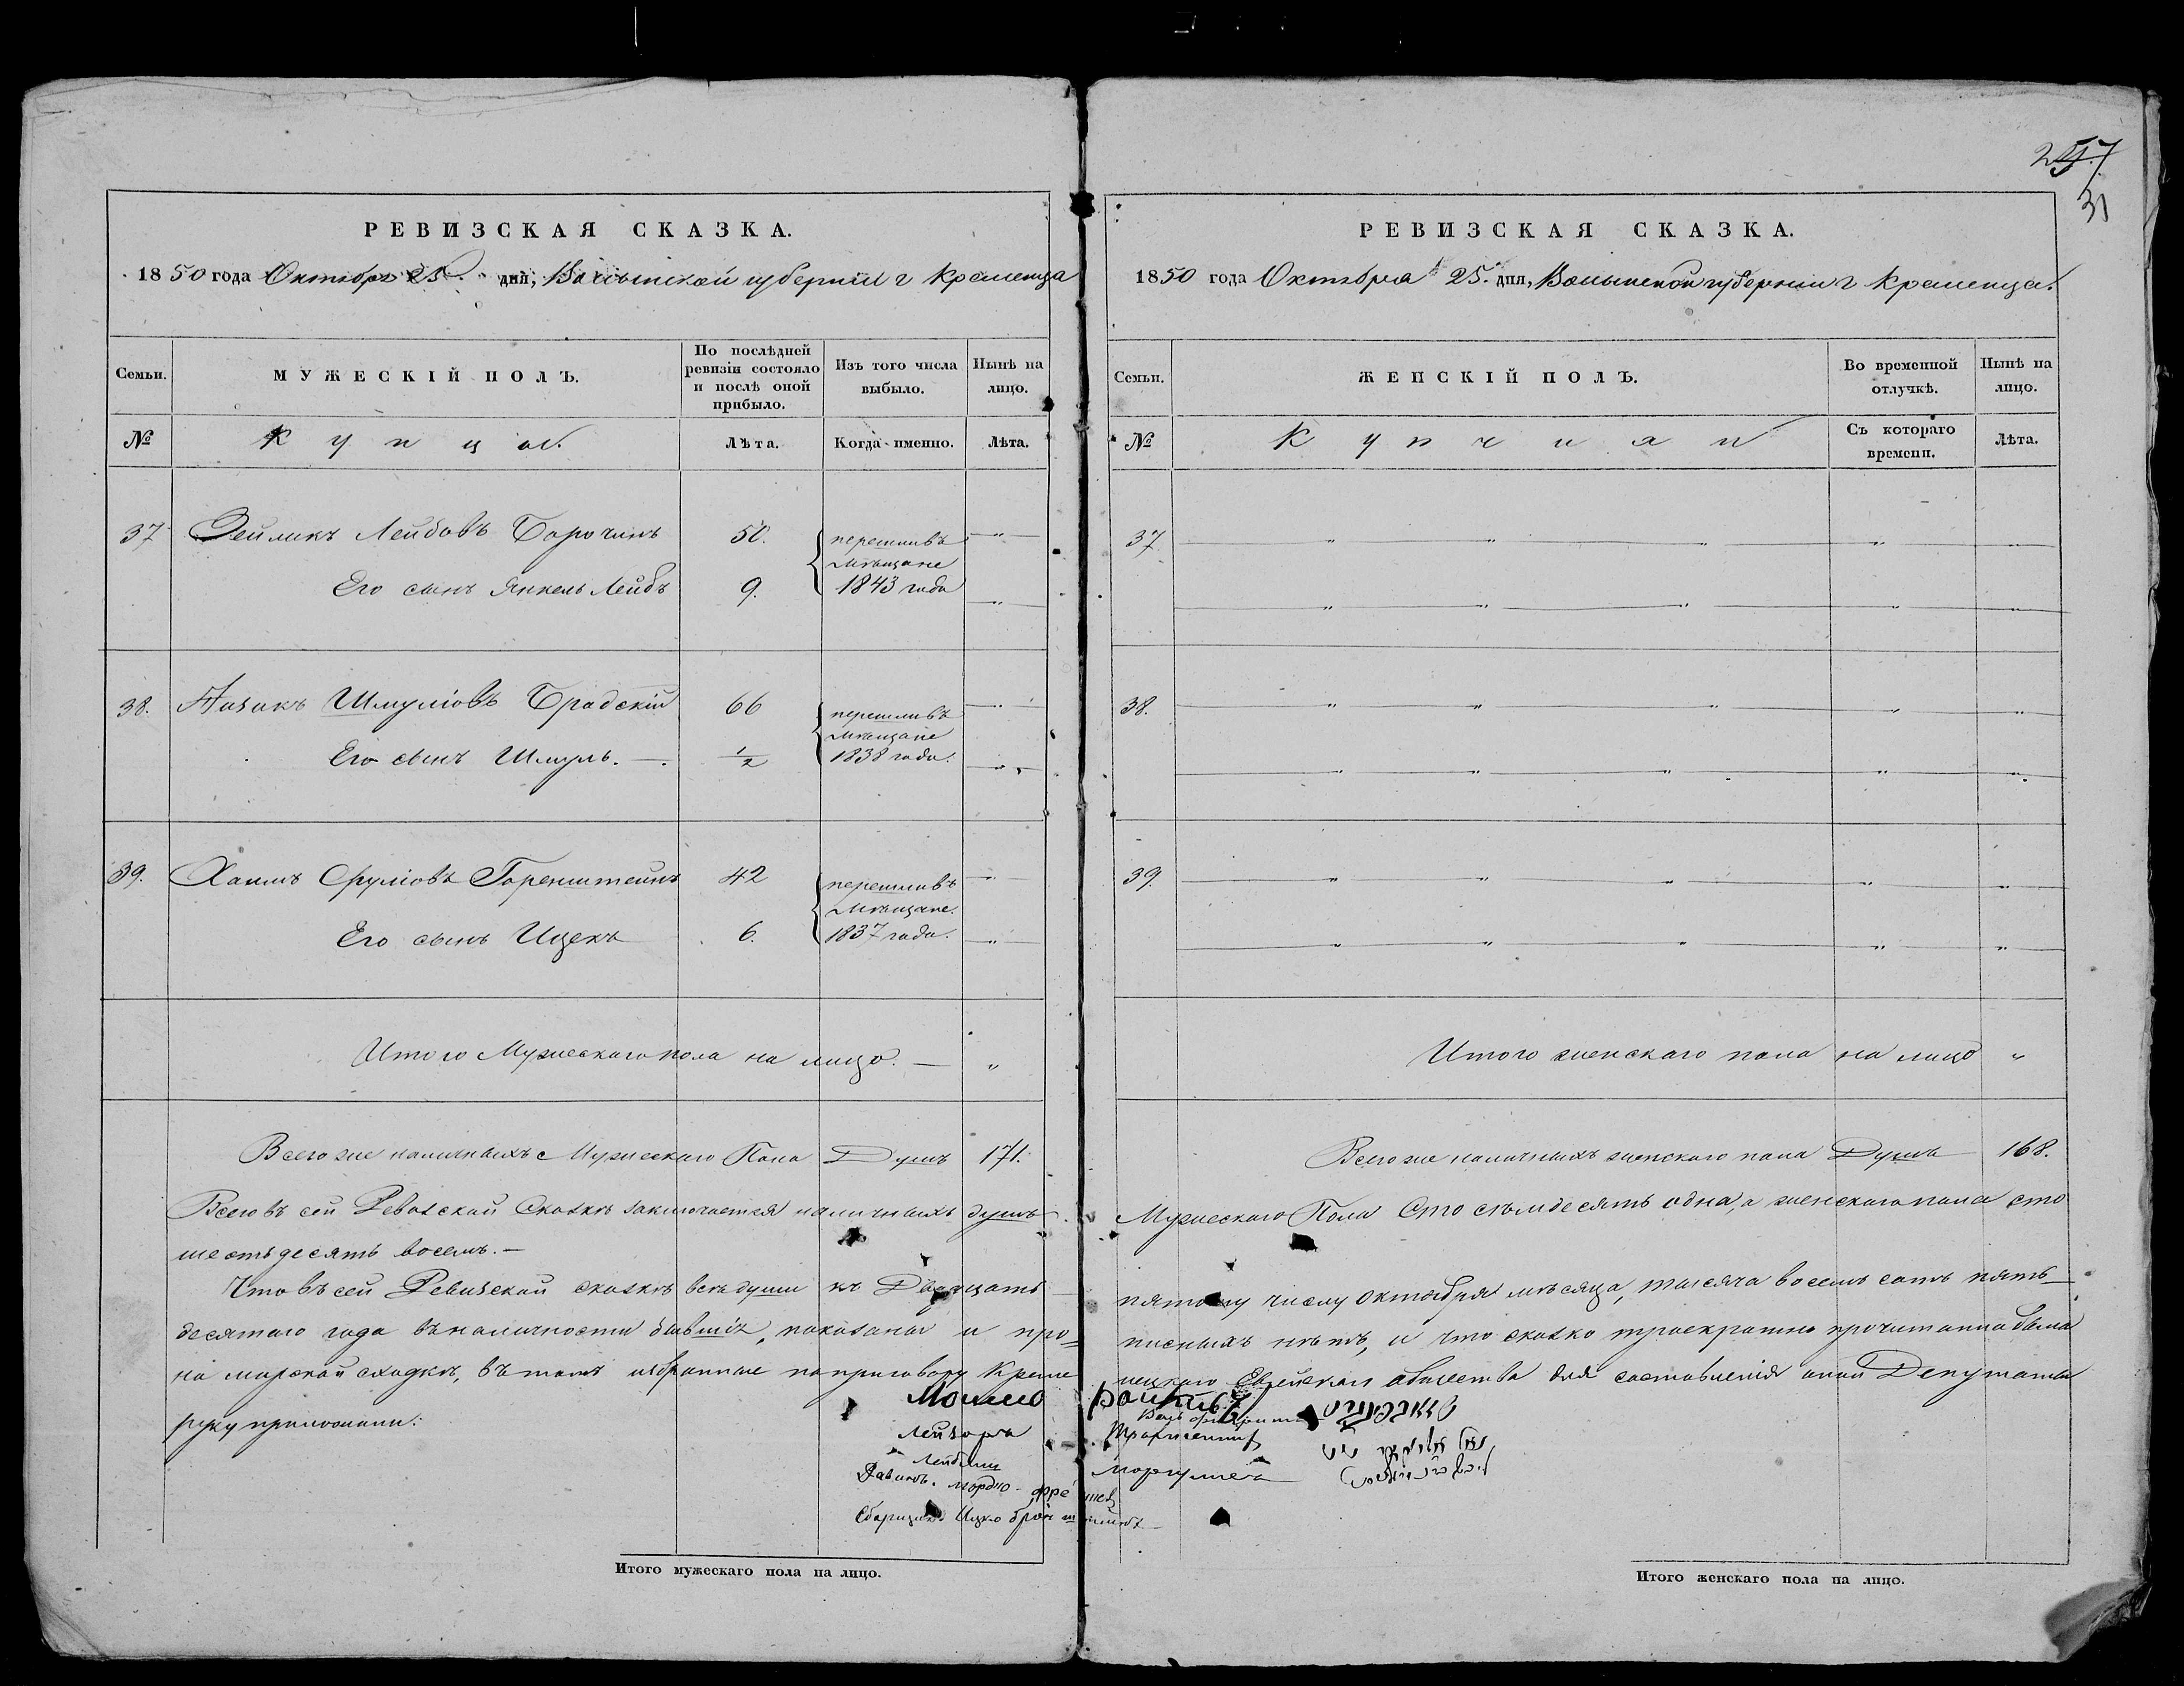 257
31
РЕВИЗСКАЯ СКАЗКА.
1850 года Октября 25. дня, Волынской губернии г Кременца
Семьи.
МУЖЕСКІЙ ПОЛЪ.
По послѣдней ревизіи состояло и послѣ оной прибыло.
Изъ того числа выбыло.
Нынѣ на лицо.
№
Купцов.
Лѣта.
Когда именно.
Лѣта.
37 Зейликъ Лейбовъ 50. перешливъ
мѣщане
Его сынъ Янкель Лейбъ 9. 1843 года
38. Аизикъ Шмуліовъ Бродскій 66 перешливъ
мѣщане
Его сынъ Шмуль. — 1/2 1838 года.
39. Хаимъ Сруліовъ Горенштейнъ 42 перешливъ
мѣщане.
Его сынъ Ицекъ 6. 1837 года.
Итого Мужескаго пола на лицо. — "
Всего же наличныхъ Мужескаго Пола Душъ 171.
Всего въ сей Ревизской Сказкѣ заключается наличныхъ душъ
шестьдесятъ восемъ. —
Что въ сей Ревизской сказкѣ всѣ души къ Двадцать
десятаго года въ наличности бывшіе, показаны и про=
на мирской сходкѣ, въ томъ избранные по приговору Креме
руку приложили:
Мошко
Лейзоръ
Равинъ. мордко - фре
Сборщикъ Ицко брон
Итого мужескаго пола на лицо.
РЕВИЗСКАЯ СКАЗКА.
1850 года Октября 25. дня, Волынской губернии г Кременца.
Семьи.
ЖЕНСКІЙ ПОЛЪ.
Во временной отлучкѣ.
Нынѣ на лицо.
№
Купчихи
Съ котораго времени.
Лѣта.
37.
38.
39.
Итого женскаго пола на лицо "
Всего же наличныхъ женскаго пола Душъ 168.
Мужескаго Пола Сто съмдесятъ одна, а женскаго пола сто
пятому числу Октября мѣсяца, тысяча восемъ сотъ пять
писныхъ нѣтъ, и что сказка троекратно прочитанна была
нецкаго Еврейскаго общества для составленія оной Депутаты
Маргулиса
штейнъ
Итого женскаго пола на лицо.